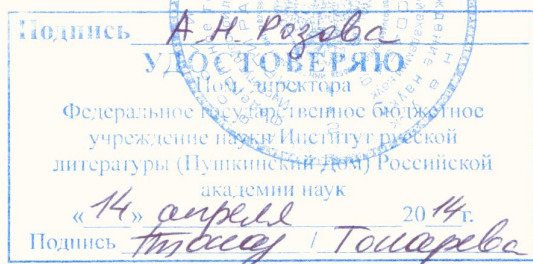 Подпись А.Н. Розова
УДОСТОВЕРЯЮ
Пом. директора
Федеральное государственное бюджетное
учреждение науки Институт русской
литературы (Пушкинский Дом) Российской
академии наук
«14» апреля 2014г.
Подпись / Токарева